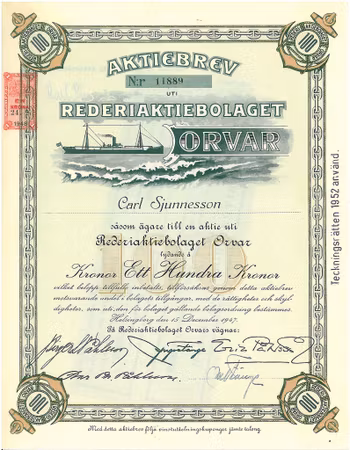 100 100
AKTIEBREV
N:r 11889
UTI
REDERIAKTIEBOLAGET
ORVAR
Carl Sjunnesson
såsom ägare till en aktie uti
Rederiaktiebolaget Orvar
lydande å
Kronor Ett Hundra Kronor
vilket belopp till fullo inbetalts, tillförsäkras genom detta aktiebrev
motsvarande andel i bolagets tillgångar, med de rättigheter och skyl-
digheter, som uti, den för bolaget gällande bolagsordning bestämmes.
Helsingborg den 15 December 1947.
På Rederiaktiebolaget Orvars vägnar:
100 100
Med detta aktiebrev följa vinstutdelningskuponger jämte talong.
Teckningsrätten 1952 använd.